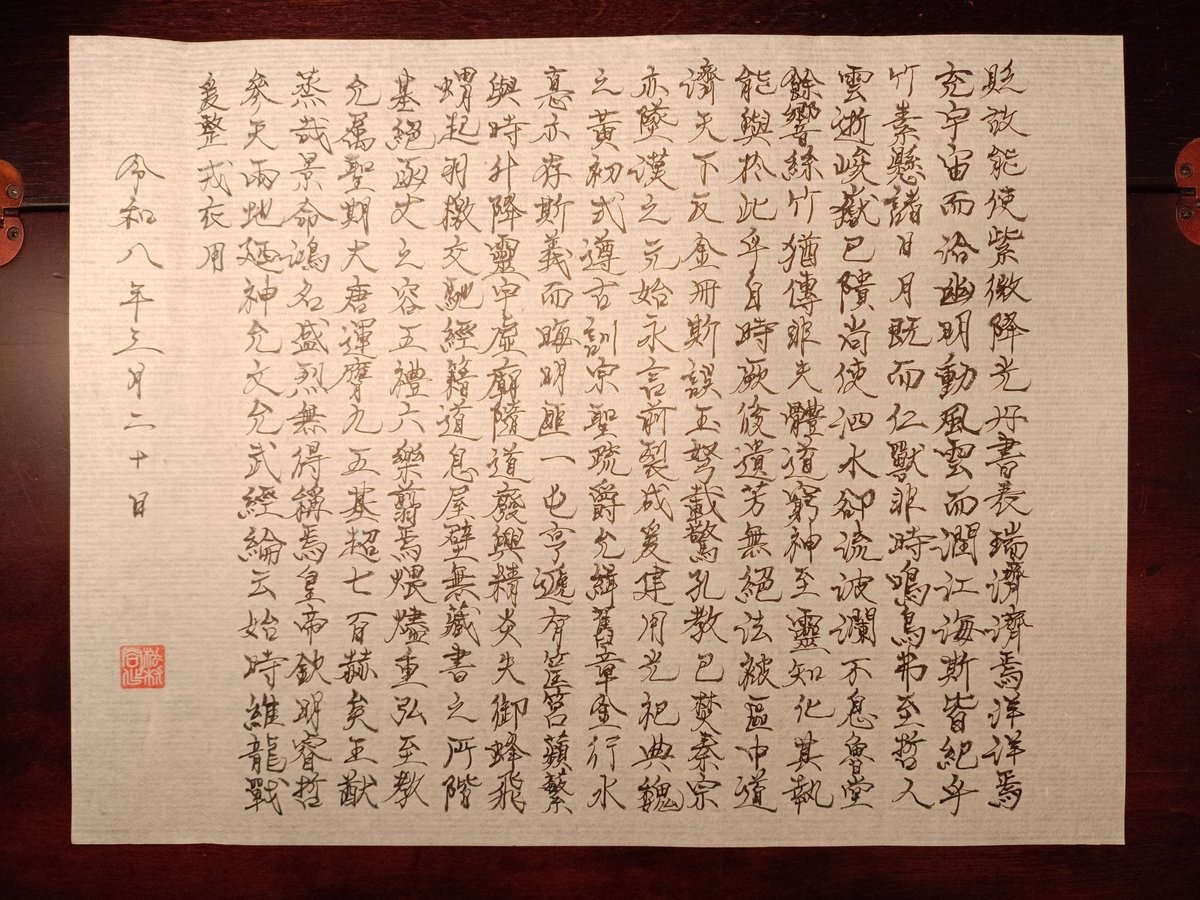 貶故能使紫微降光丹書表瑞濟濟焉洋洋焉
充宇宙而洽幽明動風雲而潤江海斯皆紀乎
竹素懸諸日月既而仁獸非時鳴鳥弗至哲人
雲逝峻嶽已隤尚使泗水卻流波瀾不息魯堂
餘響絲竹猶傳非夫體道窮神至靈知化其孰
能與於此乎自時厥後遺芳無絕法被區中道
濟天下及金冊斯誤玉弩載驚孔教已焚秦宗
亦墜漢之元始永言前裂成爰建用光祀典魏
之黃初式遵古訓宗聖疏爵允緝舊章金行水
悳亦存斯義而晦明匪一屯亨遞有筐筥蘋蘩
與時升降靈宇虛廟隨道廢興精炎失御蜂飛
蝟起羽檄交馳經籍道息屋壁無藏書之所階
基絕函丈之容五禮六樂翦焉煨燼重弘至教
允屬聖期大唐運膺九五基超七百赫矣王猷
蒸哉景命鴻名盛烈無得稱焉皇帝欽明睿哲
參天兩地廼神允文允武經綸云始時維龍戰
爰整戎衣用
令和八年三月二十日